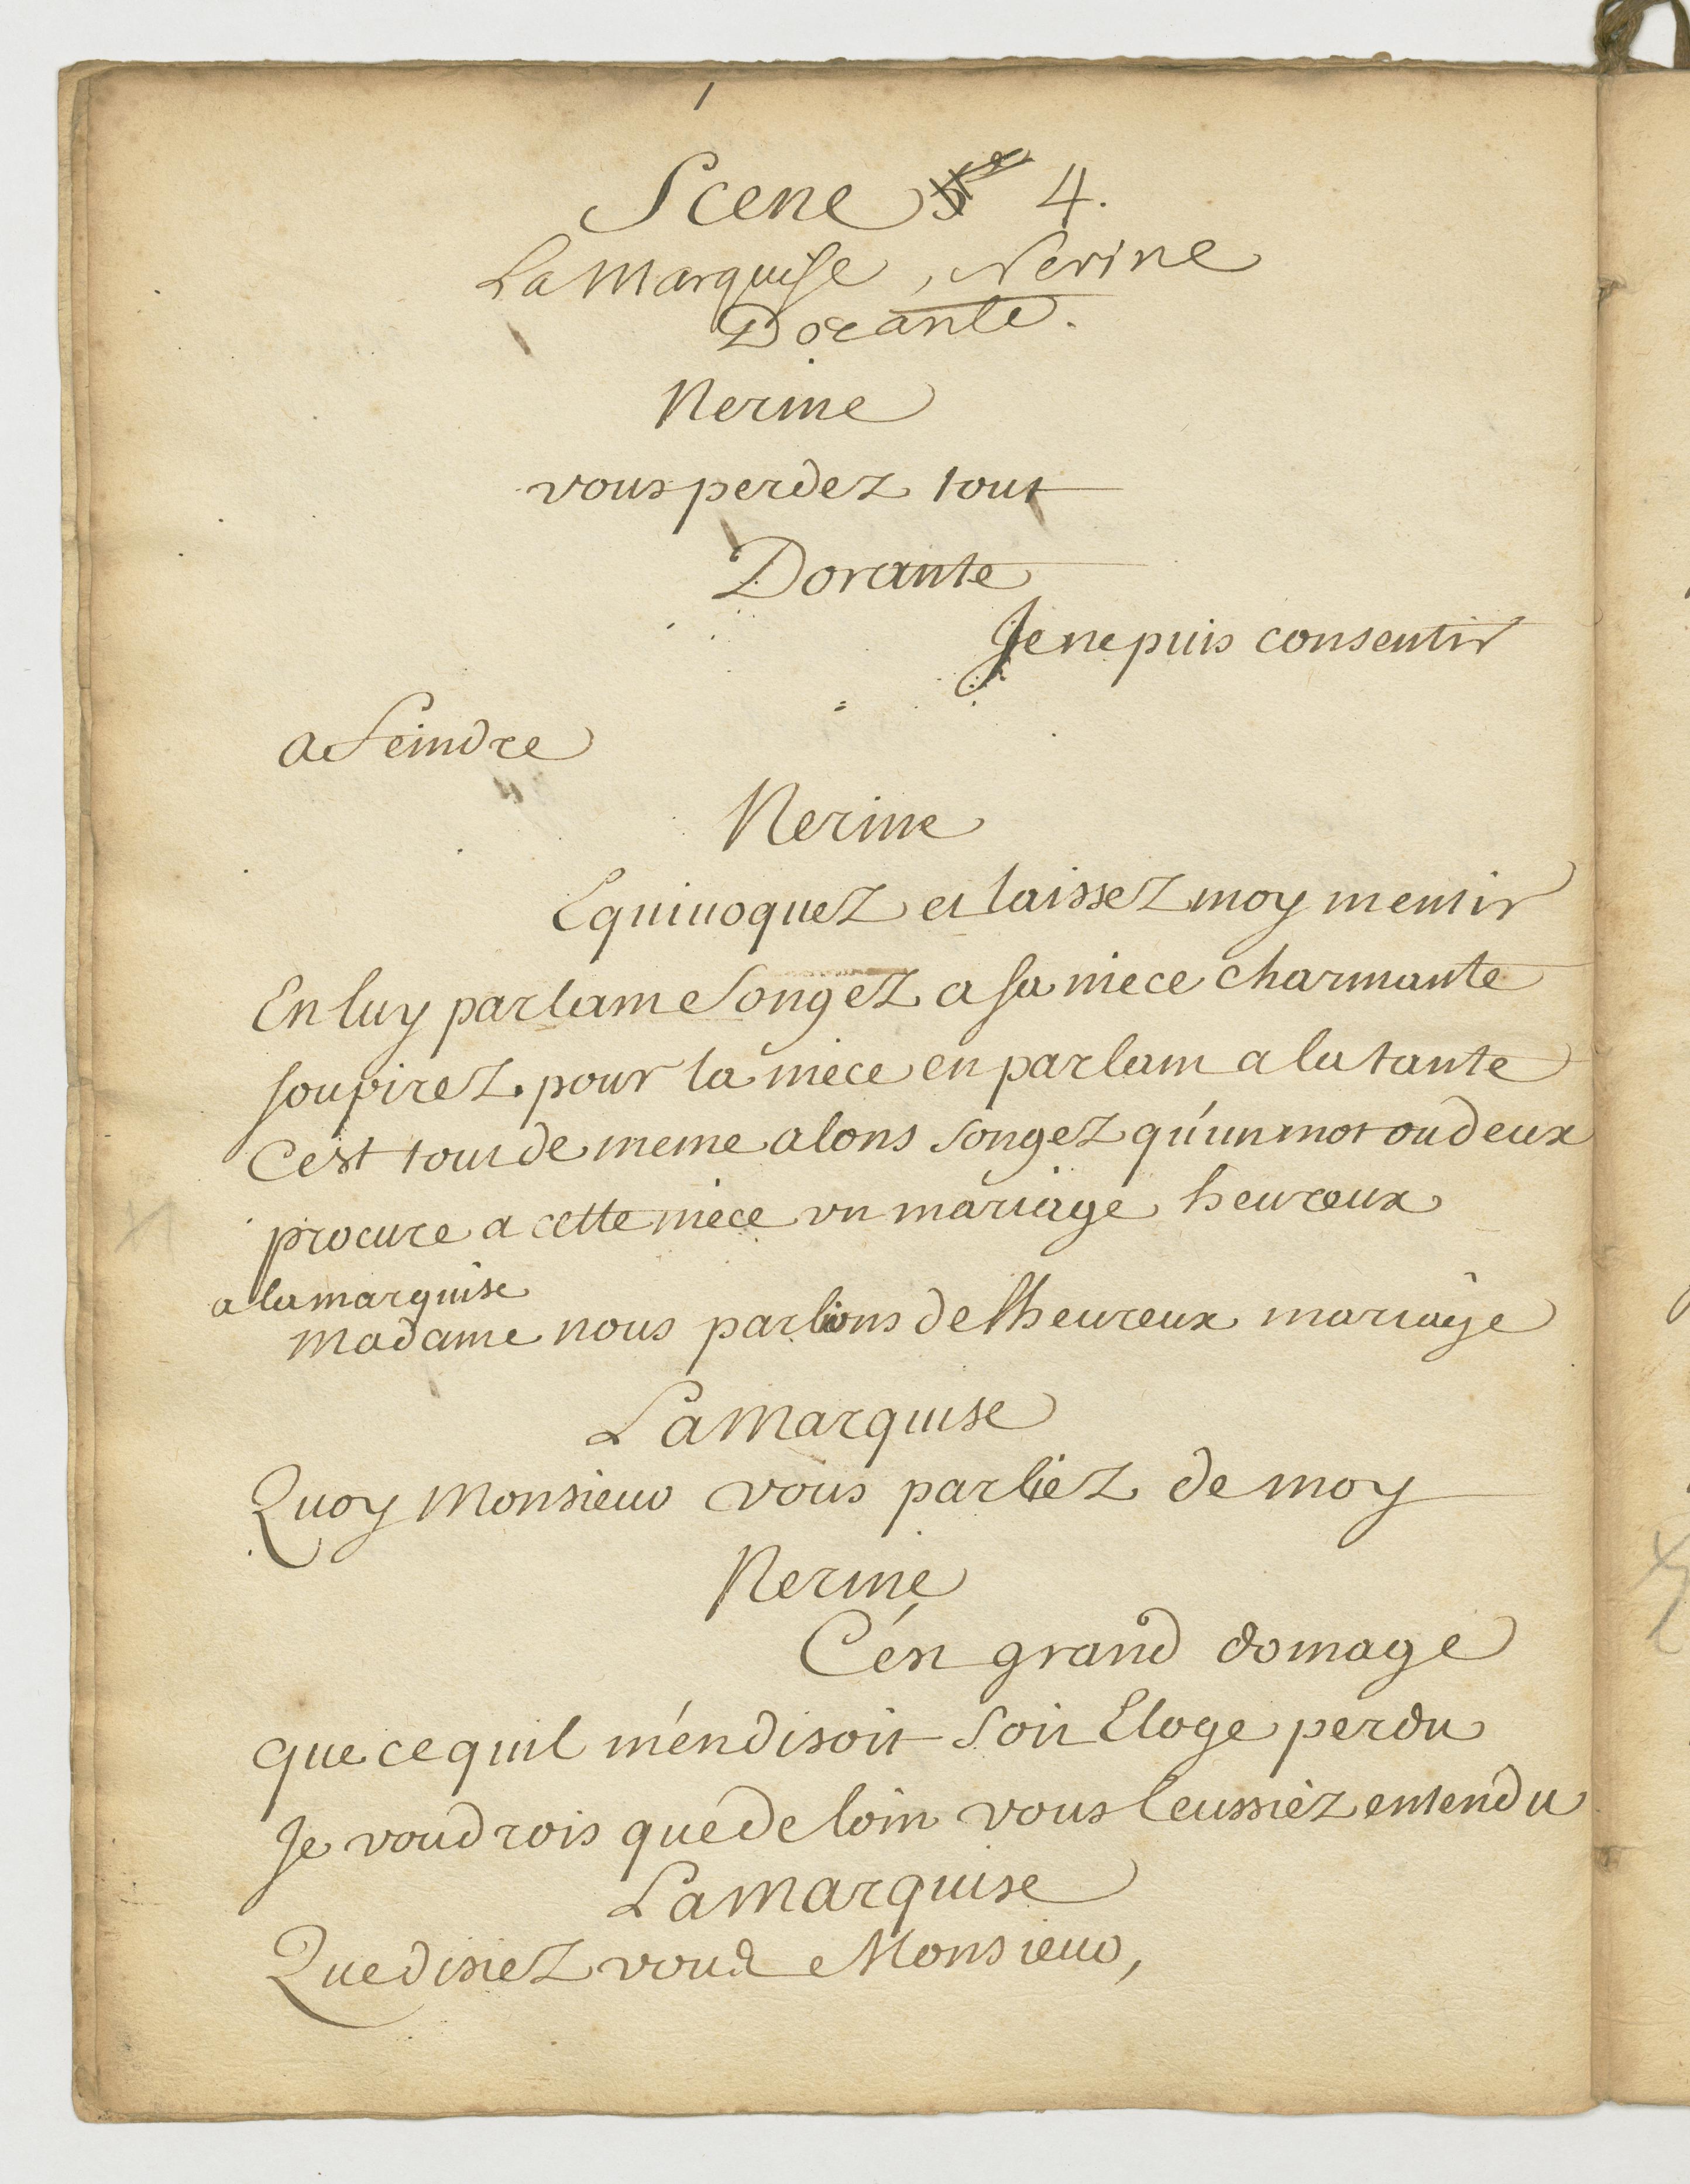 Scene 4.
La Marquise, Nerine
Dorante.
Nerine
vous perdez tout
Dorante
Je ne puis consentir
a feindre
Nerine
Equiuoquez et laissez moy mentir
En luy parlant songez a sa niece charmante
soupirez pour la niece en parlant a la tante
C'est tout de meme alons songez qu'un mot ou deux
procure a cette niece vn mariage heureux
a la marquise
Madame nous parlions de l'heureux mariage
La Marquise
Quoy Monsieur vous parliez de moy
Nerine
C'est grand domage
que ce quil m'en disoit soit Eloge perdu
Je voudrois que de loin vous leussiez entendu
La Marquise
Que disiez vous Monsieur,